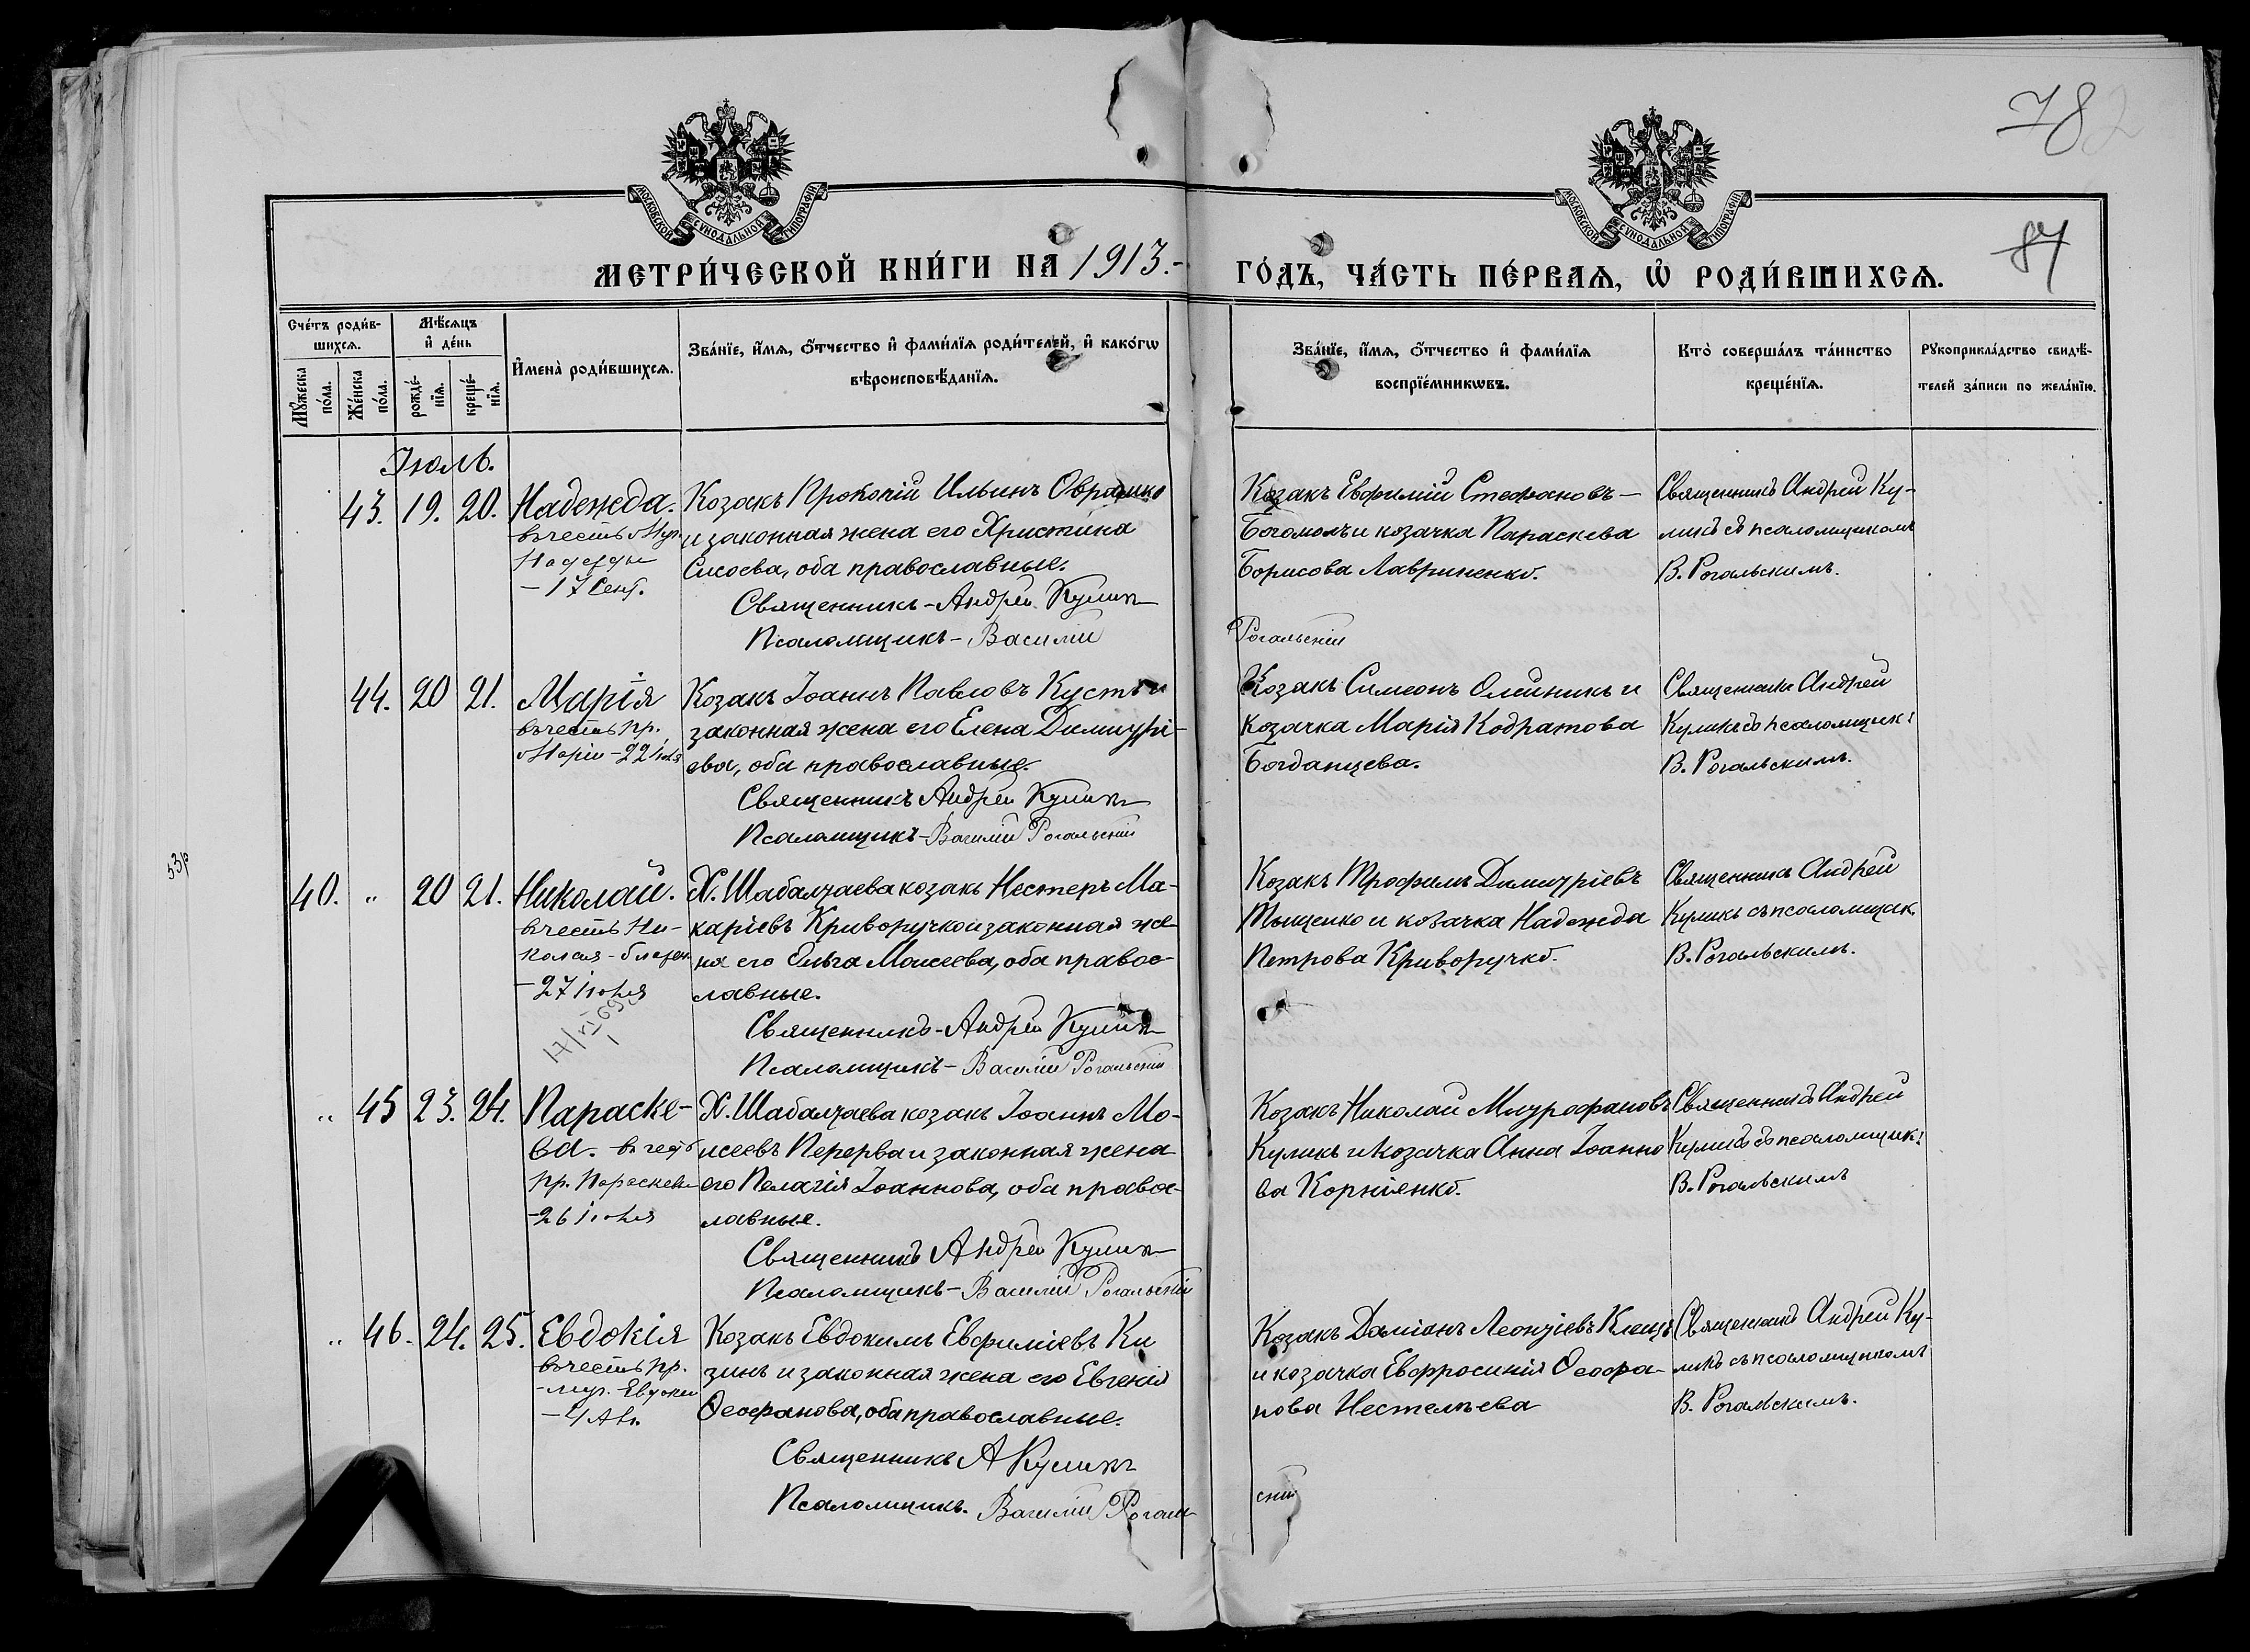 782
МОСКОВСКОЙ СѴНОДАЛЬНОЙ ТИПОГРАФІИ
МОСКОВСКОЙ СѴНОДАЛЬНОЙ ТИПОГРАФІИ
87
МЕТРИ́ЧЕСКОЙ КНИ́ГИ НА 1913.-
ГО́ДЪ, ЧА́СТЬ ПЕ́РВАѦ, Ѡ҆ РОДИ́ВШИХСѦ.
Сче́тъ роди́в-
шихсѧ.
Мѣ́сѧцъ
и҆ де́нь
Мꙋ́жеска
по́ла.
Же́нска
по́ла.
рожде́-
нїѧ.
креще́-
нїѧ.
И҆мена̀ роди́вшихсѧ.
Зва́нїе, и҆́мѧ, ѻ҆́тчество и҆ фами́лїѧ роди́телей, и҆ како́гѡ
вѣроисповѣ́данїѧ.
Зва́нїе, и҆́мѧ, ѻ҆́тчество и҆ фами́лїѧ
воспрїе́мникѡвъ.
Кто̀ соверша́лъ та́инство
креще́нїѧ.
Рꙋкоприкла́дство свидѣ́-
телей за́писи по жела́нїю.
Іюль.
43. 19. 20. Надежда.
въ честь Муч.
Надежды
- 17 Сент.
Козакъ Прокопій Ильинъ
и законная жена его Христина
Сисоева, оба православные.
Священникъ - Андрей Куликъ
Псаломщикъ - Василій
Козакъ Евфимій Стефановъ -
Богомолъ и козачка Параскева
Борисова Лавриненко.
Рогальскій
Священникъ Андрей Ку-
ликъ съ псаломщикомъ
В. Рогальскимъ.
44. 20 21. Марія
въ честь пр.
Маріи - 22 іюля
Козакъ Іоаннъ Павловъ Кусть и
законная жена его Елена Димитрі-
ева, оба православные.
Священникъ Андрей Куликъ
Псаломщикъ - Василій Рогальскій
Козакъ Симеонъ Олійникъ и
козачка Марія Кодратова
Богданцева.
Священникъ Андрей
Куликъ съ псаломщик:
В. Рогальскимъ.
40. " 20 21. Николай.
въ честь Ни-
колая - блажен
- 27 іюля
Х. Шабалтаева козакъ Нестеръ Ма-
каріевъ Криворучко и законная же-
на его Ольга Моисеева, оба правос-
лавные.
Священникъ - Андрей Куликъ
Псаломщикъ - Василій Рогальскій
Козакъ Трофимъ Димитріевъ
Тыщенко и козачка Надежда
Петрова Криворучко.
Священникъ Андрей
Куликъ съ псаломщик.
В. Рогальскимъ.
" 45 23. 24. Параске-
ва. въ честь
пр. Параскевы
- 26 іюля
Х. Шабалтаева козакъ Іоаннъ Мо-
исеевъ Перерва и законная жена
его Пелагія Іоаннова, оба правос-
лавные.
Священникъ Андрей Куликъ
Псаломщикъ - Василій Рогальскій
Козакъ Николай Митрофановъ
Куликъ и козачка Анна Іоанно
ва Корніенко.
Священникъ Андрей
Куликъ съ псаломщик:
В. Рогальскимъ
" 46. 24. 25. Евдокія
въ честь пр.
- муч. Евдокіи
- 4 Ав.
Козакъ Евдокимъ Евфиміевъ Ки
зимъ и законная жена его Евгенія
Ѳеофанова, оба православные.
Священникъ А Куликъ
Псаломщикъ. Василій Рогаль
Козакъ Даміанъ Леонтіевъ Клещъ
и козачка Евфросинія Ѳеофа-
нова Нестельева
скій
Священникъ Андрей Ку-
ликъ съ псаломщикомъ
В. Рогальскимъ.